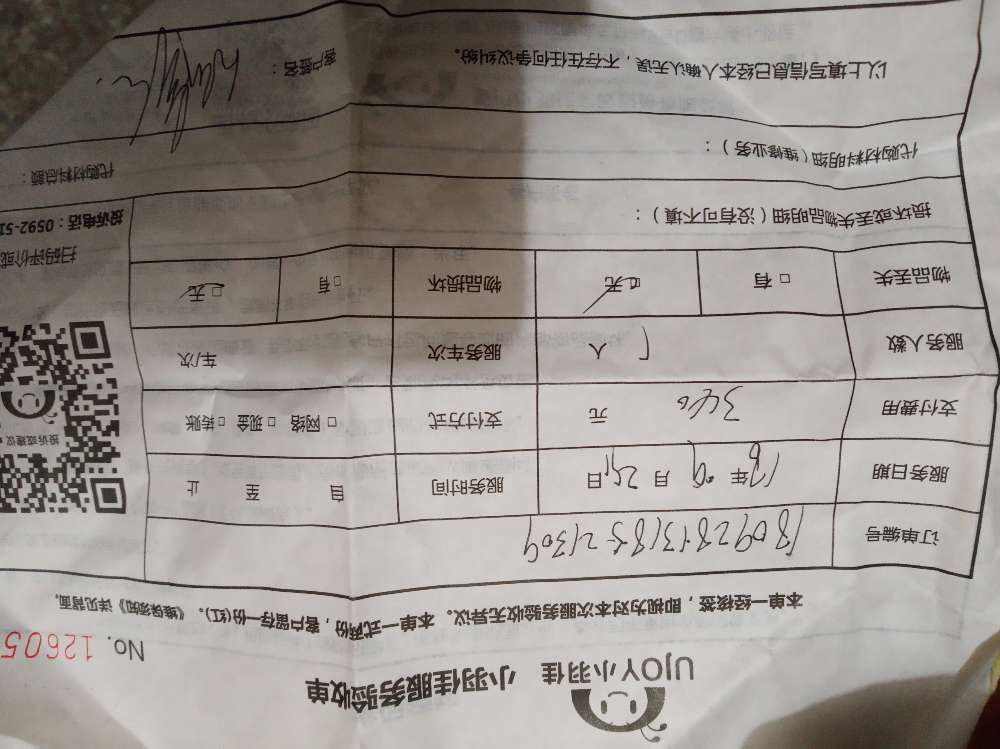 UJOY小羽佳 小羽佳服务验收单
No. 12605
本单一经核签，即视为对本次服务验收无异议。本单一式两份，客户留存一份(红)。《维保须知》详见背面。
订单编号
服务日期 18年 09月 29日 服务时间 自 至 止
支付费用 340 元 支付方式 □ 网络 □ 现金 □ 转账
服务人数 1 人 服务车次 车/次
物品丢失 □ 有 □ 无 物品损坏 □ 有 □ 无
损坏或丢失物品明细（没有可不填）：
代购材料明细（维修业务）： 代购材料总额：
以上填写信息已经本人确认无误，不存在任何争议纠纷。 客户签名：
投诉或建议
扫码评价或
投诉电话：0592-51